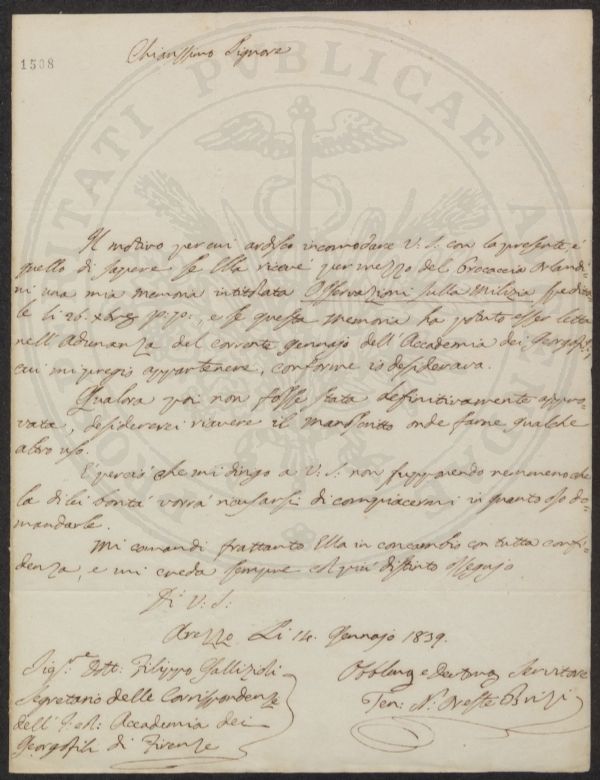 1508
Chiarissimo Signore
Il motivo per cui ardisco incomodare V: S: con la presente è
quello di sapere se Ella riceve per mezzo del Procaccia Orlandi-
ni una mia memoria intitolata Osservazioni sulla Milizia spedita-
le li 26. Xbre p:p:, e se questa memoria ha potuto esser letta
nell'Adunanza del corrente gennajo dell'Accademia dei Georgofili,
cui mi pregio appartenere, conforme io desiderava.
Qualora poi non fosse stata definitivamente appro-
vata, desidererei riavere il manoscritto onde farne qualche
altro uso.
E perciò che mi dirigo a V: S: non supponendo nemmeno che
la di lei bontà vorrà ricusarsi di compiacermi in quanto oso do-
mandarle.
Mi comandi frattanto Ella in concambio con tutta confi-
denza, e mi creda sempre col più distinto ossequio
Di V: S:
Arezzo Li 14. Gennajo 1839.
Sigre Dott: Filippo Gallizioli
Segretario delle Corrispondenze
dell' I: e R: Accademia dei
Georgofili di Firenze
Obblmo e Devtmo Servitore
Ten: N: Oreste Brizi
PUBLICAE